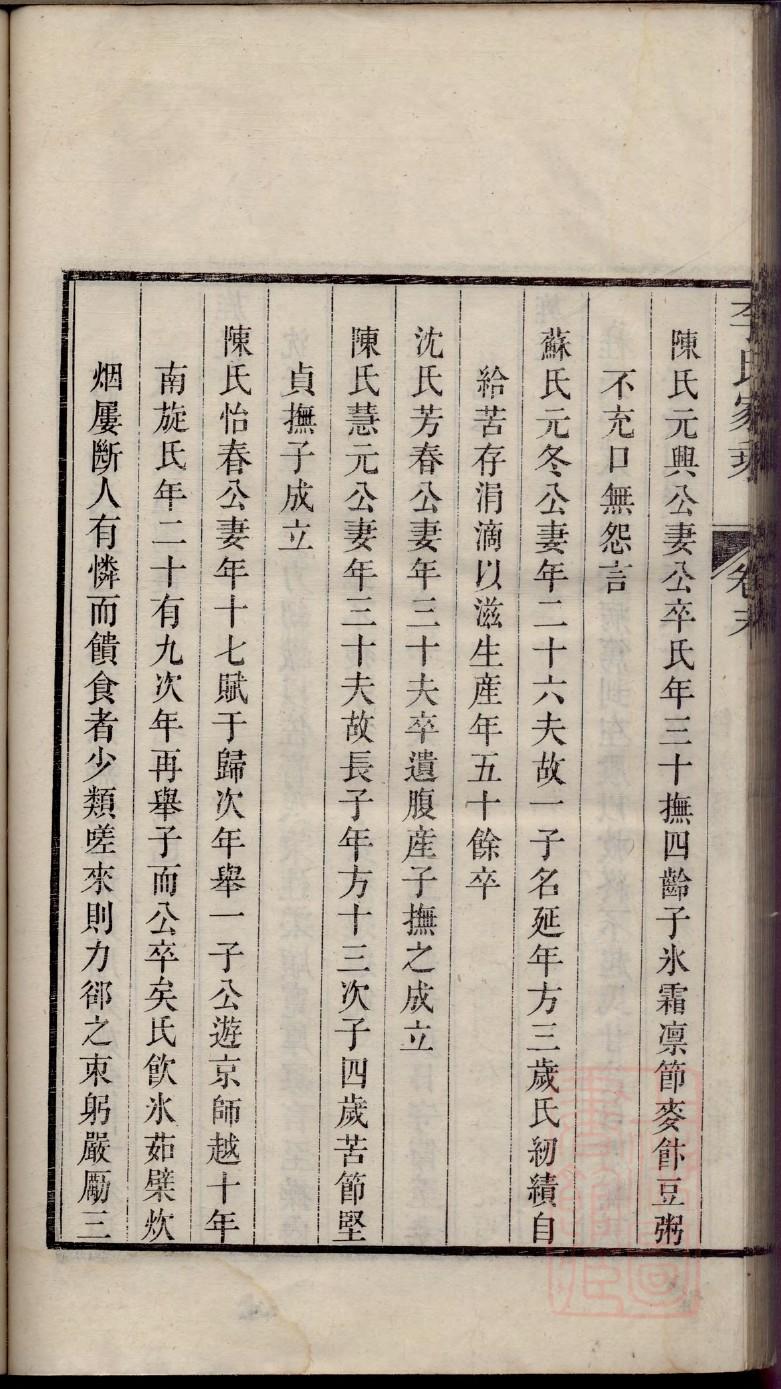 李氏家乘 卷末
陳氏元興公妻公卒氏年三十撫四齡子氷霜凛節麥飰豆粥
不充口無怨言
蘇氏元冬公妻年二十六夫故一子名延年方三歲氏紉績自
給苦存涓滴以滋生産年五十餘卒
沈氏芳春公妻年三十夫卒遺腹産子撫之成立
陳氏慧元公妻年三十夫故長子年方十三次子四歲苦節堅
貞撫子成立
陳氏怡春公妻年十七賦于歸次年舉一子公遊京師越十年
南旋氏年二十有九次年再舉子而公卒矣氏飲氷茹櫱炊
烟屢斷人有憐而饋食者少類嗟來則力郤之束躬嚴厲三